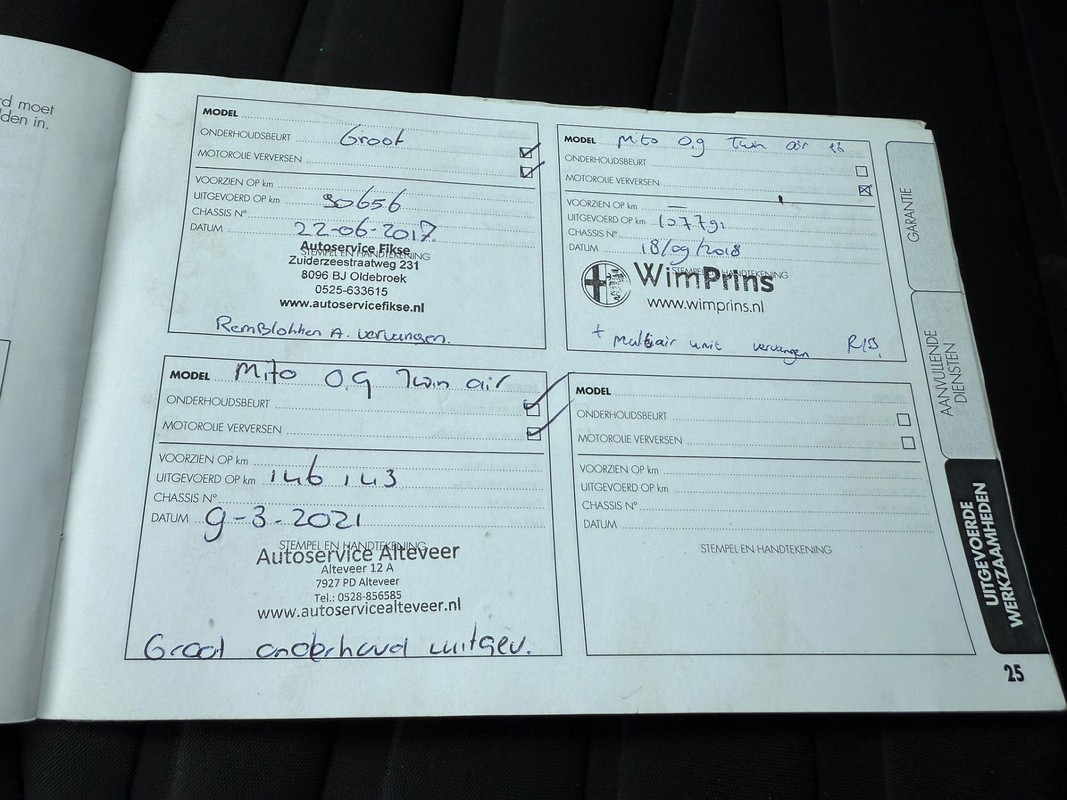 rd moet
lden in.
MODEL
ONDERHOUDSBEURT Groot
MOTOROLIE VERVERSEN
VOORZIEN OP km
UITGEVOERD OP km 90656
CHASSIS Nº
DATUM 22-06-2017
STEMPEL EN HANDTEKENING
Autoservice Fikse
Zuiderzeestraatweg 231
8096 BJ Oldebroek
0525-633615
www.autoservicefikse.nl
Remblokken A. vervangen.
MODEL Mito 0.9 Twin air
ONDERHOUDSBEURT
MOTOROLIE VERVERSEN
VOORZIEN OP km —
UITGEVOERD OP km 107791
CHASSIS Nº
DATUM 18/09/2018
STEMPEL EN HANDTEKENING
WimPrins
www.wimprins.nl
+ Multiair unit vervangen
MODEL Mito 0.9 Twin air
ONDERHOUDSBEURT
MOTOROLIE VERVERSEN
VOORZIEN OP km
UITGEVOERD OP km 146 143
CHASSIS Nº
DATUM 9-3-2021
STEMPEL EN HANDTEKENING
Autoservice Alteveer
Alteveer 12 A
7927 PD Alteveer
Tel.: 0528-856585
www.autoservicealteveer.nl
Groot onderhoud uitgev.
MODEL
ONDERHOUDSBEURT
MOTOROLIE VERVERSEN
VOORZIEN OP km
UITGEVOERD OP km
CHASSIS Nº
DATUM
STEMPEL EN HANDTEKENING
GARANTIE
AANVULLENDE
DIENSTEN
UITGEVOERDE
WERKZAAMHEDEN
25